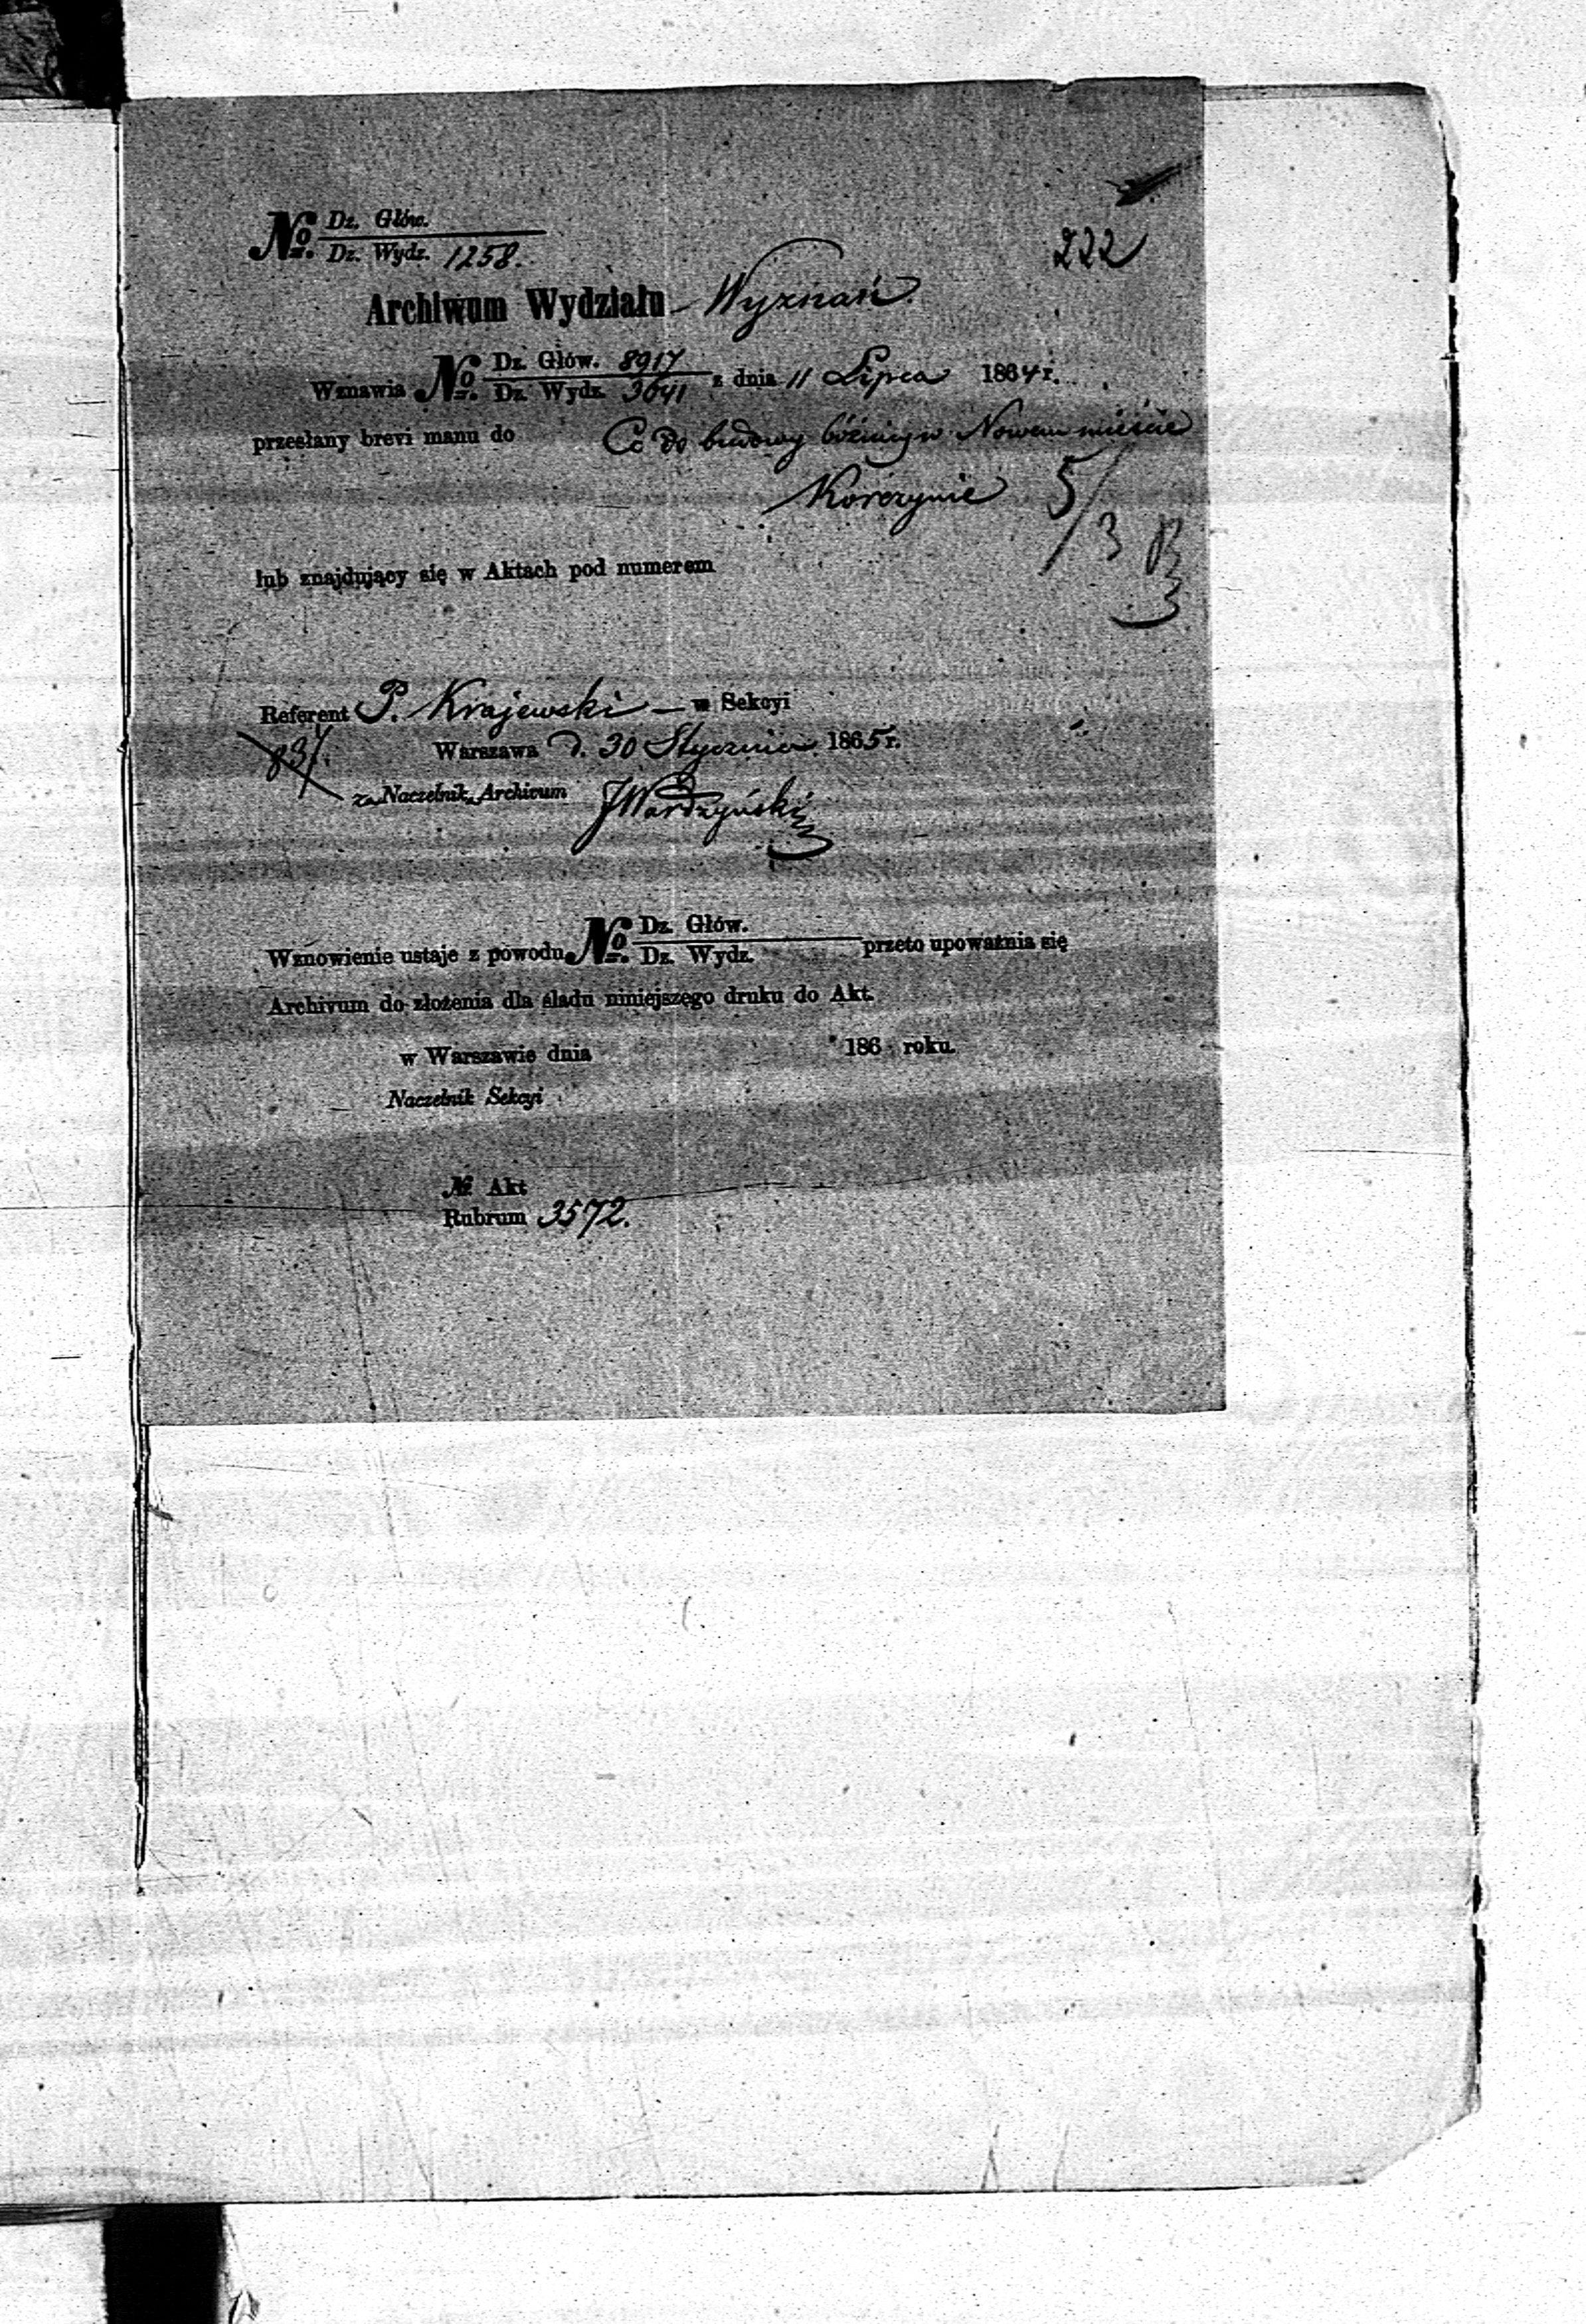 № Dz. Głów.
Dz. Wydz. 1258.
222
Archiwum Wydziału Wyznań.
Wznawia № Dz. Głów. 8917
Dz. Wydz. 3641 z dnia 11 Lipca 1864 r.
przesłany brevi manu do Co do budowy bóżnicy w Nowem mieście
Korczynie 5/3
lub znajdujący się w Aktach pod numerem
Referent P. Krajewski — w Sekcyi
837. Warszawa d. 30 Stycznia 1865 r.
za Naczelnika Archivum JWardzyński
Wznowienie ustaje z powodu № Dz. Głów.
Dz. Wydz. przeto upoważnia się
Archivum do złożenia dla śladu niniejszego druku do Akt.
w Warszawie dnia 186 roku.
Naczelnik Sekcyi
№ Akt
Rubrum 3572.